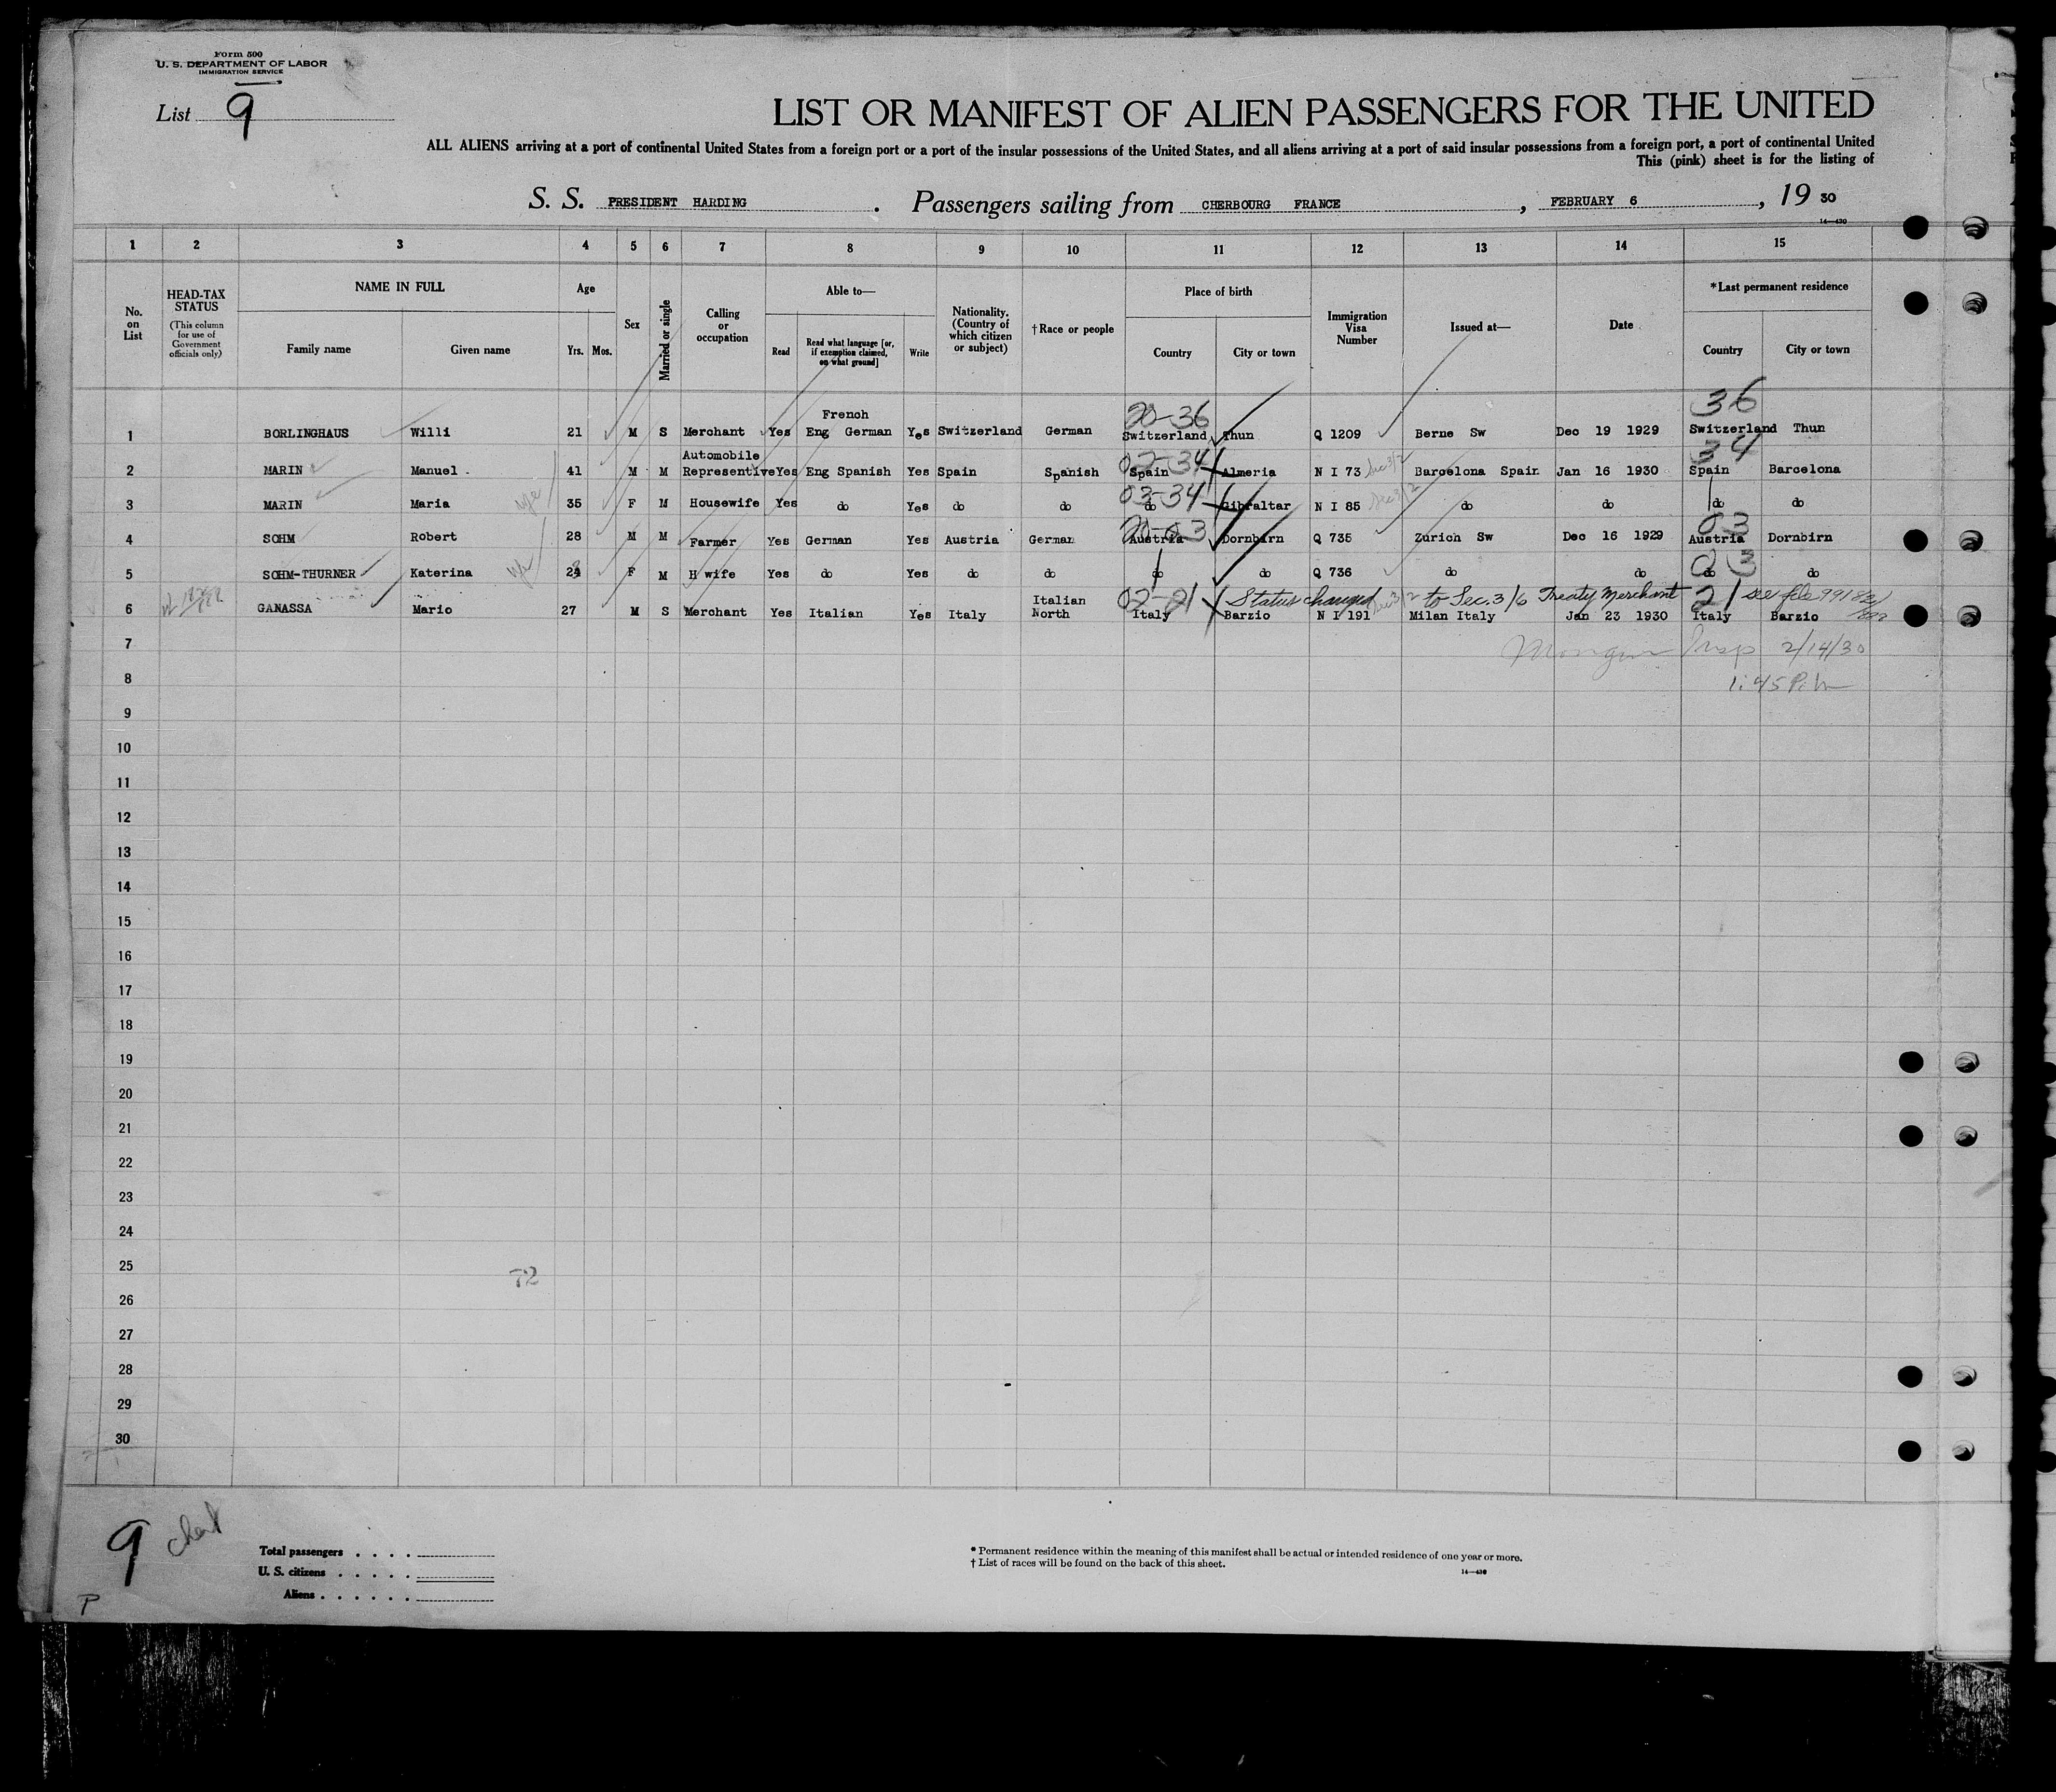 Form 500
U. S. DEPARTMENT OF LABOR
IMMIGRATION SERVICE
List 9
LIST OR MANIFEST OF ALIEN PASSENGERS FOR THE UNITED
ALL ALIENS arriving at a port of continental United States from a foreign port or a port of the insular possessions of the United States, and all aliens arriving at a port of said insular possessions from a foreign port, a port of continental United
This (pink) sheet is for the listing of
S. S. PRESIDENT HARDING . Passengers sailing from CHERBOURG FRANCE , FEBRUARY 6 , 19 30
14—430
1 2 3 4 5 6 7 8 9 10 11 12 13 14 15
No. on List
HEAD-TAX STATUS (This column for use of Government officials only)
NAME IN FULL
Family name Given name
Age
Yrs. Mos.
Sex
Married or single
Calling or occupation
Able to—
Read Read what language [or, if exemption claimed, on what ground] Write
Nationality. (Country of which citizen or subject)
†Race or people
Place of birth
Country City or town
Immigration Visa Number
Issued at—
Date
*Last permanent residence
Country City or town
20-36 36
1 BORLINGHAUS Willi 21 M S Merchant Yes French Eng German Yes Switzerland German Switzerland Thun Q 1209 Berne Sw Dec 19 1929 Switzerland Thun
02-34 34
2 MARIN Manuel 41 M M Automobile Representive Yes Eng Spanish Yes Spain Spanish Spain Almeria N I 73 Sec 3/2 Barcelona Spain Jan 16 1930 Spain Barcelona
03-34
3 MARIN Maria 35 F M Housewife Yes do Yes do do do Gibraltar N I 85 Sec 3/2 do do do do
20-03 03
4 SOHM Robert 28 M M Farmer Yes German Yes Austria German Austria Dornbirn Q 735 Zurich Sw Dec 16 1929 Austria Dornbirn
03
5 SOHM-THURNER Katerina F M H wife Yes do Yes do do do do Q 736 do do do do
02-21 Status changed to Sec. 3/6 Treaty Merchant 21 see file
6 GANASSA Mario 27 M S Merchant Yes Italian Yes Italy Italian North Italy Barzio N I 191 Sec 3/2 Milan Italy Jan 23 1930 Italy Barzio
7 Insp 2/14/30
8 1:45 P.M
9
10
11
12
13
14
15
16
17
18
19
20
21
22
23
24
25
72
26
27
28
29
30
9
P
Total passengers . . . .
U. S. citizens . . . . .
Aliens . . . . . .
* Permanent residence within the meaning of this manifest shall be actual or intended residence of one year or more.
† List of races will be found on the back of this sheet.
14—430